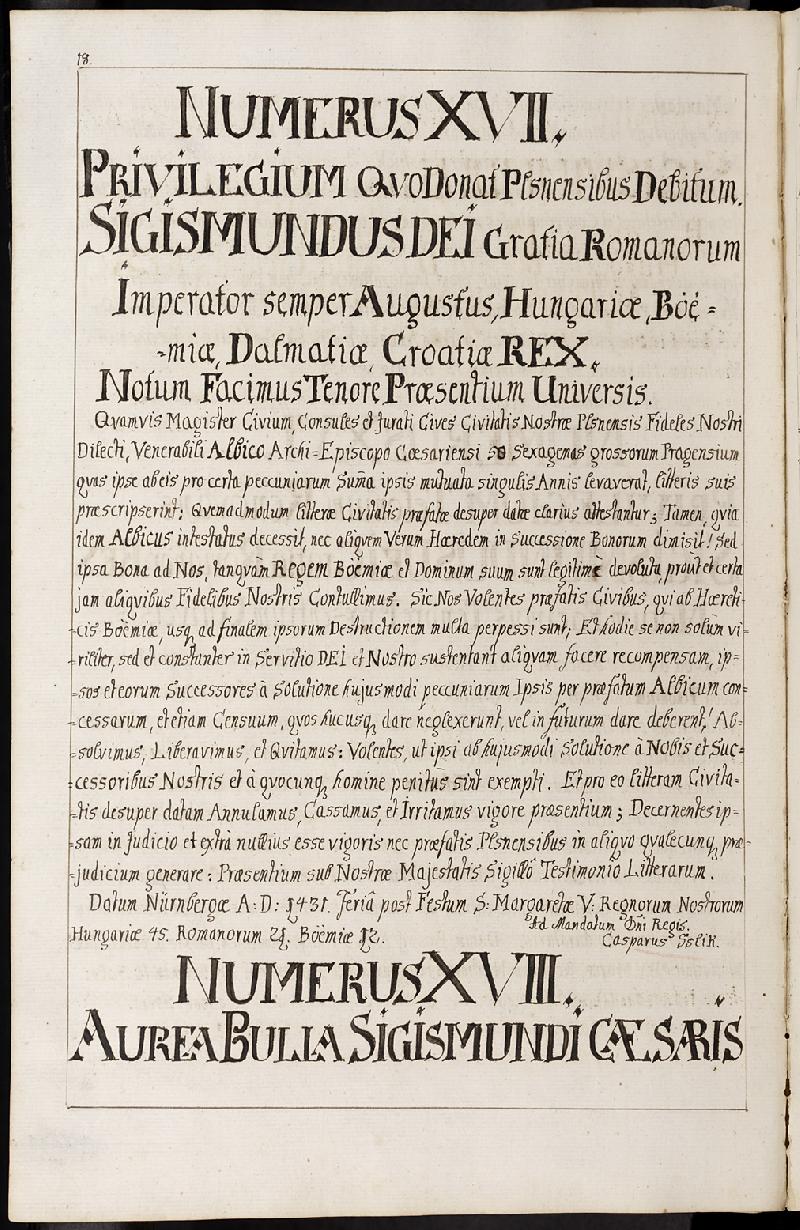 18.
NUMERUS XVII.
PRIVILEGIUM QvoDonat Plsnensibus Debitum.
SIGISMUNDUS DEI Gratia Romanorum
Imperator semper Augustus, Hungariæ, Böë=
=miæ, Dalmatiæ, Croatiæ REX.
Notum Facimus Tenore Præsentium Universis.
Qvamvis Magister Civium, Consules et Jurati Cives Civitatis Nostræ Plsnensis Fideles Nostri
Dilecti, Venerabili Albico Archi=Episcopo Cæsariensi 50 Sexagenas grossorum Pragensium
qvas ipse ab eis pro certa peccuniarum Suma ipsis mutuata singulis Annis levaverat, litteris suis
præscripserint; Qvemadmodum litteræ Civitatis præfatæ desuper datæ clarius attestantur; Tamen, qvia
idem Albicus intestatus decessit, nec aliqvem Verum Hæredem in Successione Bonorum dimisit! Sed
ipsa Bona ad Nos, tanqvam Regem Böëmiæ et Dominum suum sunt legitimè devoluta, prout et certa
jam aliqvibus Fidelibus Nostris Contullimus. Sic Nos Volentes præfatis Civibus, qvi ab Hæreti=
=cis Böëmiæ, usq, ad finalem ipsorum Destructionem multa perpessi sunt; Et hodie se non solùm vi=
=riliter, sed et constanter in Servitio DEI et Nostro sustentant aliqvam facere recompensam, ip=
=sos et eorum Successores à Solutione hujusmodi peccuniarum Ipsis per præfatum Albicum con=
=cessarum, et etiam Censuum, qvos hucusq, dare neglexerunt, vel in futurum dare deberent,! Ab=
=solvimus, Liberavimus, et Qvitamus: Volentes, ut ipsi ab hujusmodi Solutione à Nobis et Suc=
=cessoribus Nostris et à qvocunq, homine penitus sint exempti. Et pro eo litteram Civita=
=tis desuper datam Annulamus, Cassamus, et Irritamus vigore præsentium; Decernentes ip=
=sam in Judicio et extrà nullius esse vigoris nec præfatis Plsnensibus in aliqvo qvalecunq, præ=
=judicium generare: Præsentium sub Nostræ Majestatis Sigillo Testimonio Litterarum.
Datum Nürnbergæ A: D: 1431. Feriâ post Festum S: Margaretæ V: Regnorum Nostrorum
Hungariæ 45. Romanorum 21. Böëmiæ 12.
Ad Mandatum Dni Regis.
Casparus
NUMERUS XVIII.
AUREA BULLA SIGISMUNDI CÆSARIS